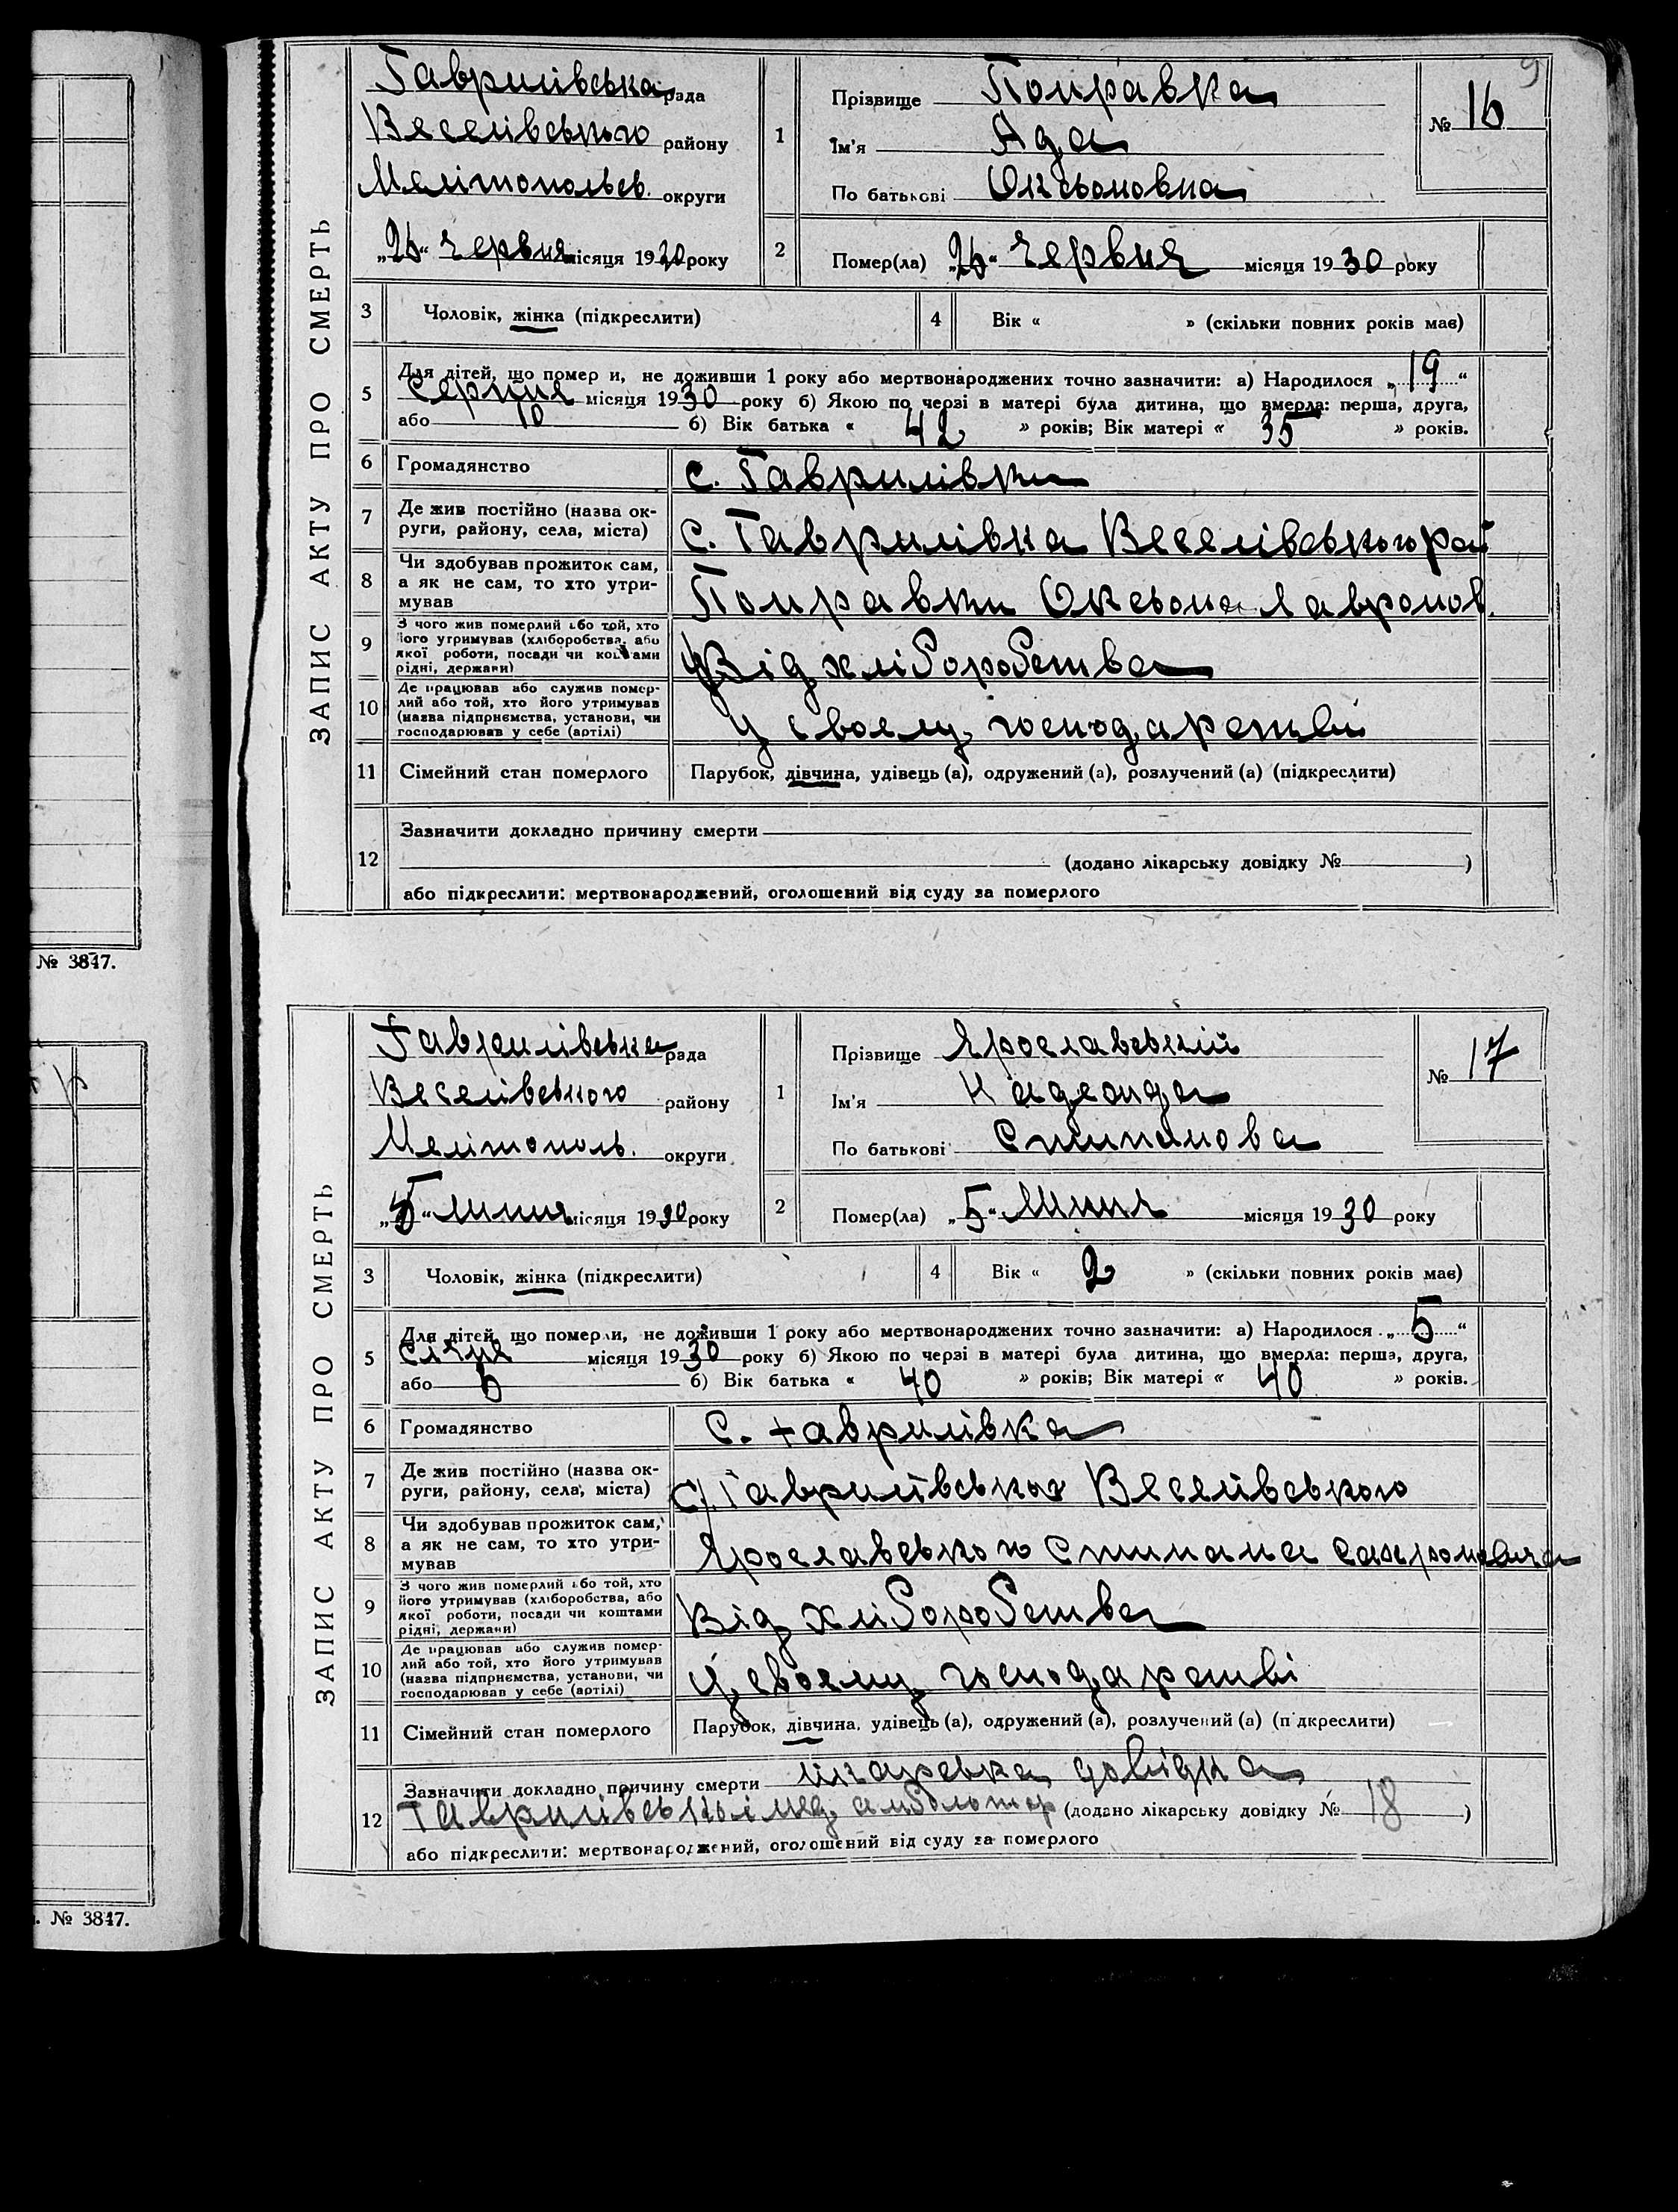 9
ЗАПИС АКТУ ПРО СМЕРТЬ
Гаврилівська рада
Веселівського району
Мелітопольсь. округи
„26“ червня місяця 1930 року
1
Прізвище Поправка
Ім'я Ада
По батькові Оксьоновна
№ 16
2
Помер(ла) „26“ червня місяця 1930 року
3 Чоловік, жінка (підкреслити)
4 Вік « » (скільки повних років має)
5 Для дітей, що помер и, не доживши 1 року або мертвонароджених точно зазначити: а) Народилося „19“
серпня місяця 1930 року б) Якою по черзі в матері була дитина, що вмерла: перша, друга,
або 10 б) Вік батька « 42 » років; Вік матері « 35 » років.
6 Громадянство с. Гаврилівки
7 Де жив постійно (назва ок-
руги, району, села, міста) с. Гаврилівка Веселівського рай
8 Чи здобував прожиток сам,
а як не сам, то хто утри-
мував Поправки Оксьона Лавронов.
9 З чого жив померлий або той, хто
його утримував (хліборобства, або
якої роботи, посади чи коштами
рідні, держави) Від хліборобства
10 Де працював або служив помер-
лий або той, хто його утримував
(назва підприємства, установи, чи
господарював у себе (артілі) У своєму господарстві
11 Сімейний стан померлого Парубок, дівчина, удівець (а), одружений (а), розлучений (а) (підкреслити)
12 Зазначити докладно причину смерти
(додано лікарську довідку № )
або підкреслити: мертвонароджений, оголошений від суду за померлого
№ 3847.
ЗАПИС АКТУ ПРО СМЕРТЬ
Гаврилівська рада
Веселівського району
Мелітополь. округи
„5“ липня місяця 1930 року
1
Прізвище Ярославський
Ім'я
По батькові Стипанова
№ 17
2
Помер(ла) „5“ липня місяця 1930 року
3 Чоловік, жінка (підкреслити)
4 Вік « 2 » (скільки повних років має)
5 Для дітей, що померли, не доживши 1 року або мертвонароджених точно зазначити: а) Народилося „5“
січня місяця 1930 року б) Якою по черзі в матері була дитина, що вмерла: перша, друга,
або 6 б) Вік батька « 40 » років; Вік матері « 40 » років.
6 Громадянство с. Гаврилівка
7 Де жив постійно (назва ок-
руги, району, села, міста) с. Гаврилівська Веселівського
8 Чи здобував прожиток сам,
а як не сам, то хто утри-
мував Ярославського Стипана
9 З чого жив померлий або той, хто
його утримував (хліборобства, або
якої роботи, посади чи коштами
рідні, держави) Від хліборобства
10 Де працював або служив помер-
лий або той, хто його утримував
(назва підприємства, установи, чи
господарював у себе (артілі) У своєму господарстві
11 Сімейний стан померлого Парубок, дівчина, удівець (а), одружений (а), розлучений (а) (підкреслити)
12 Зазначити докладно причину смерти лікарська довідка
Гаврилівської мед. (додано лікарську довідку № 18 )
або підкреслити: мертвонароджений, оголошений від суду за померлого
№ 3847.